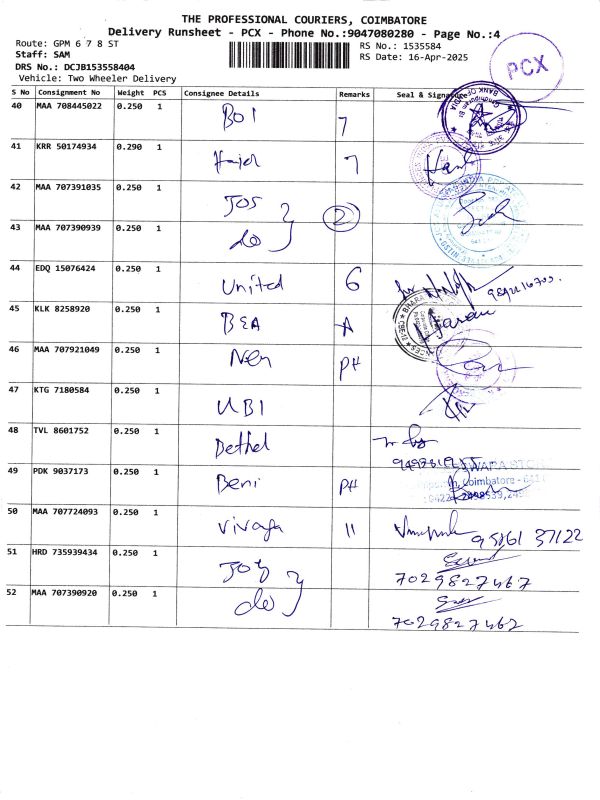 THE PROFESSIONAL COURIERS, COIMBATORE
Delivery Runsheet - PCX - Phone No.:9047080280 - Page No.:4
Route: GPM 6 7 8 ST
Staff: SAM
DRS No.: DCJB153558404
Vehicle: Two Wheeler Delivery
RS No.: 1535584
RS Date: 16-Apr-2025
PCX
S No Consignment No Weight PCS Consignee Details Remarks Seal & Signature
40 MAA 708445022 0.250 1 BOI 7
BANK OF INDIA
41 KRR 50174934 0.290 1 7
42 MAA 707391035 0.250 1 JOS 2
43 MAA 707390939 0.250 1 do
44 EDQ 15076424 0.250 1 United 6
45 KLK 8258920 0.250 1 BEA A
46 MAA 707921049 0.250 1 New PH
47 KTG 7180584 0.250 1 UBI
48 TVL 8601752 0.250 1 Dethel
49 PDK 9037173 0.250 1 Beni PH
Coimbatore
50 MAA 707724093 0.250 1 Vinaya 11 95861 37122
51 HRD 735939434 0.250 1 Joy 7029827467
52 MAA 707390920 0.250 1 do 7029827462